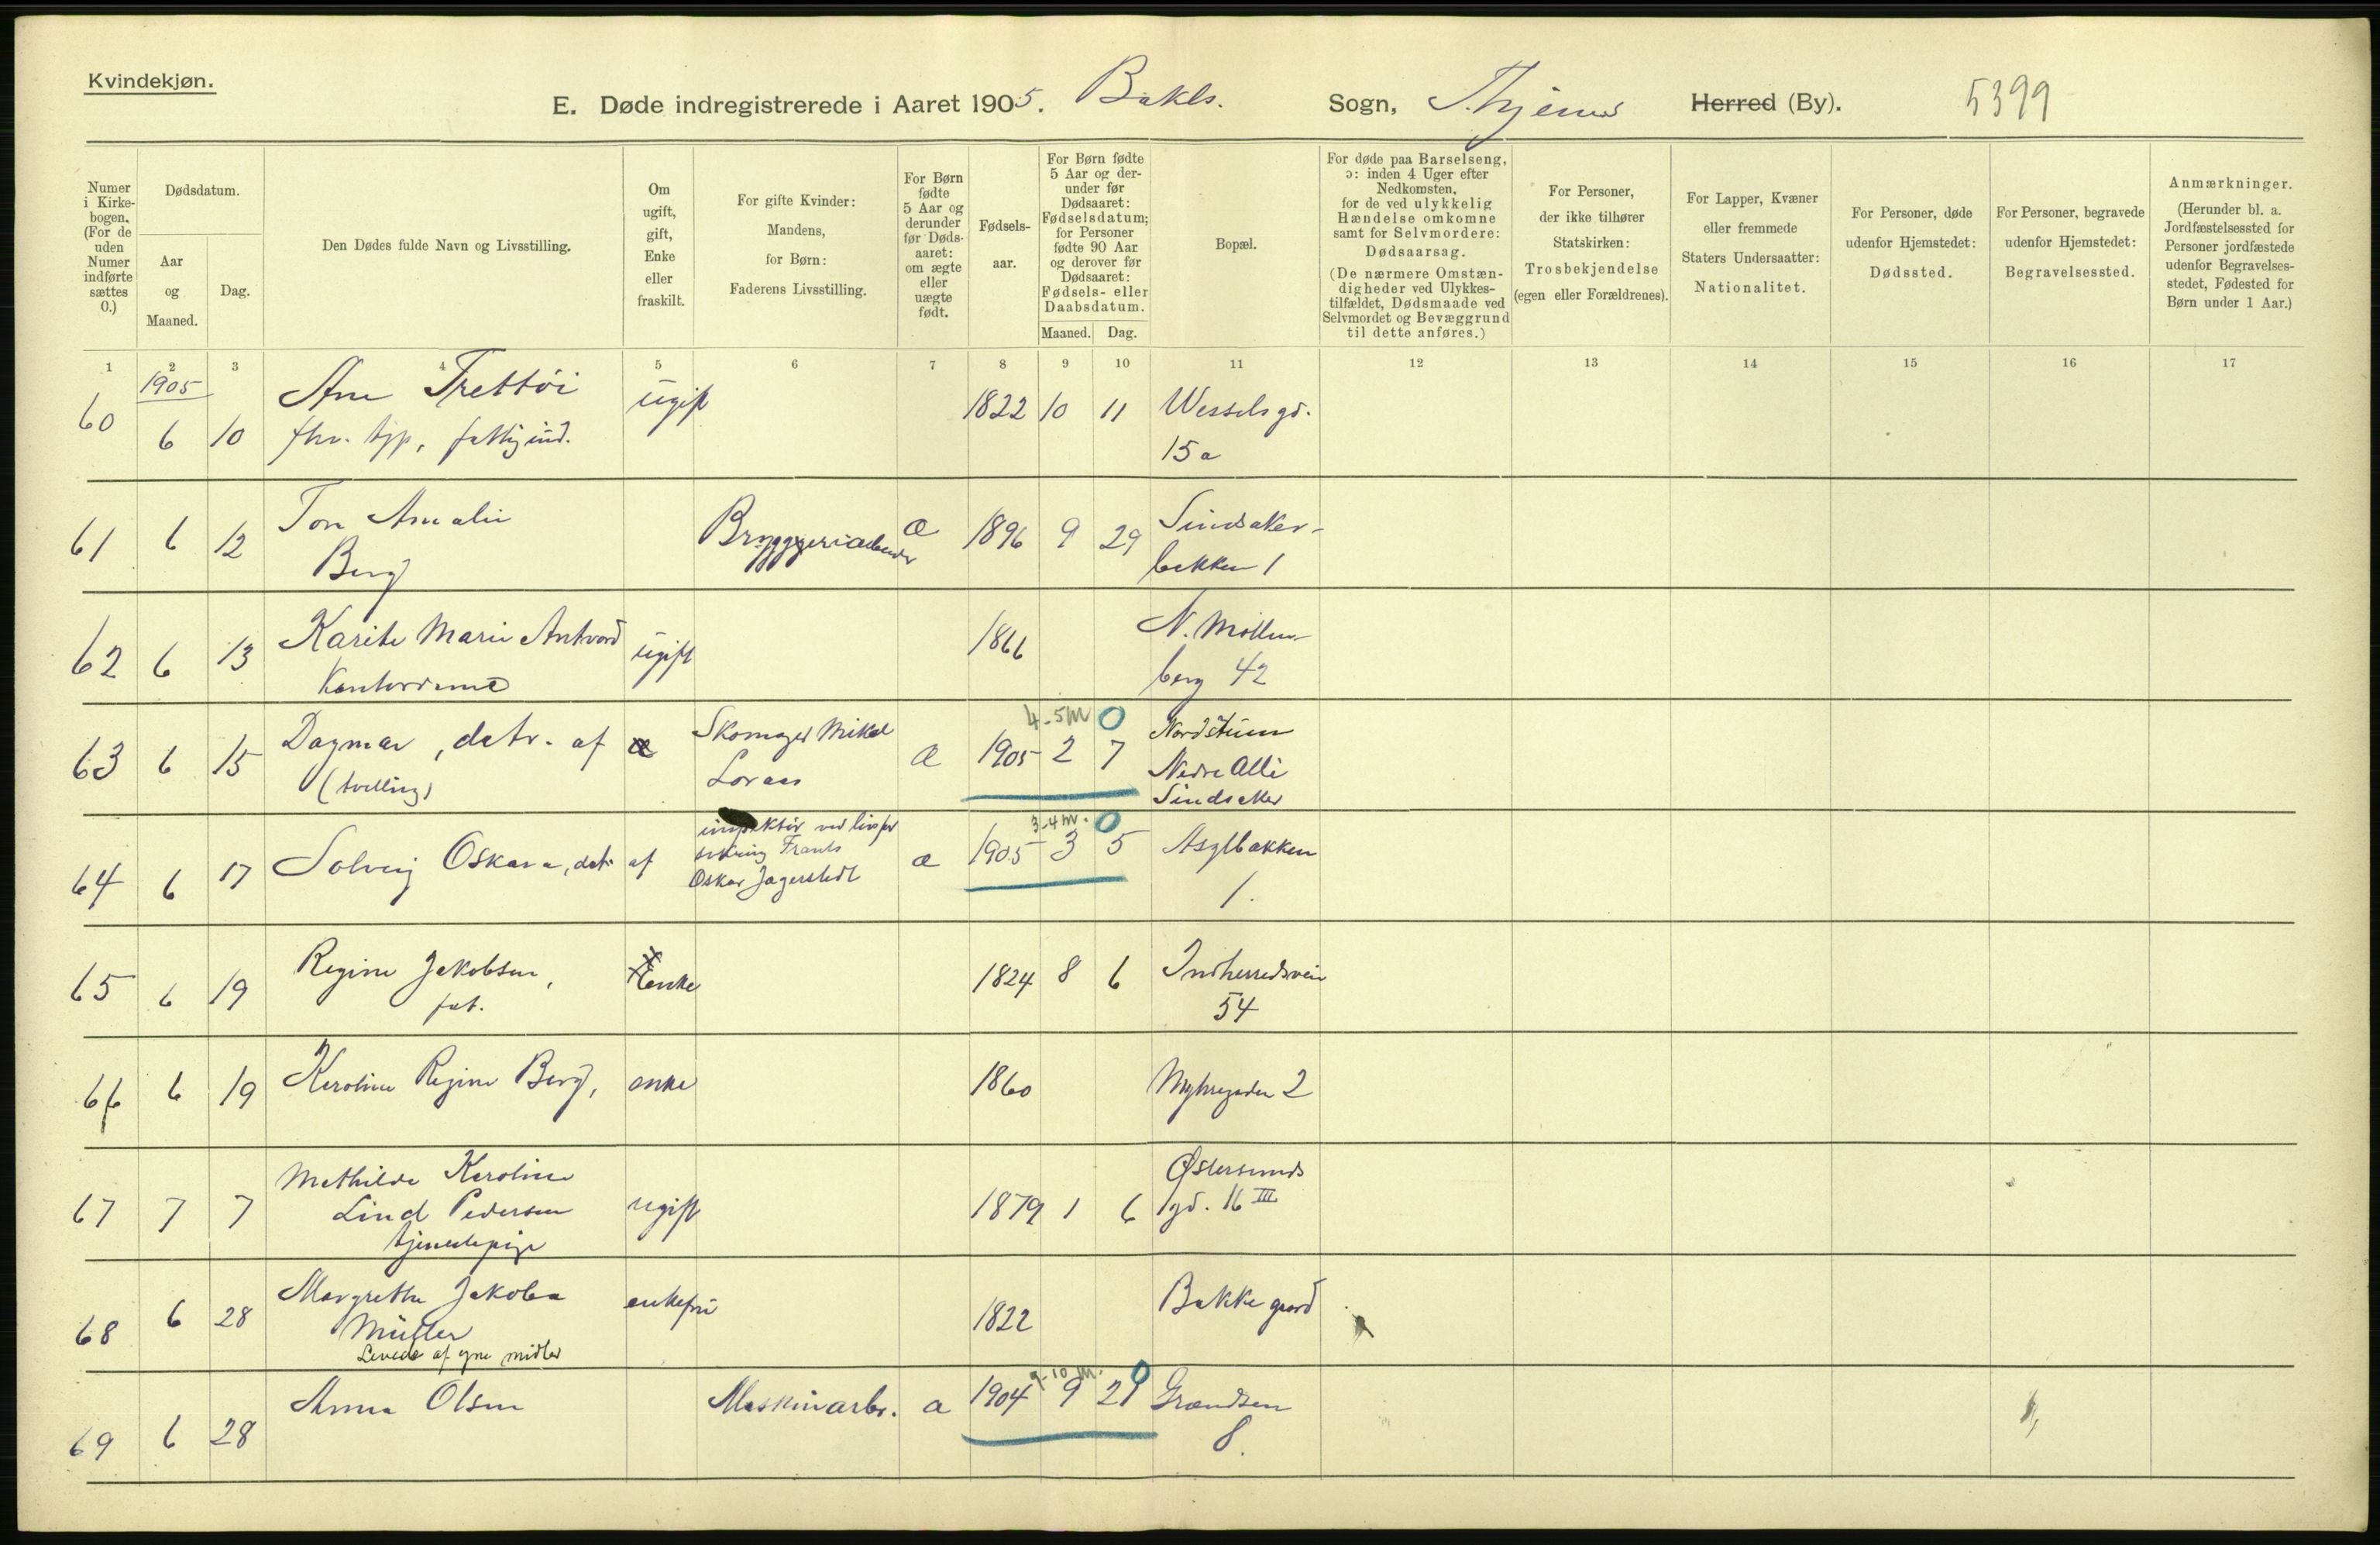 Kvindekjøn.
E. Døde indregistrerede i Aaret 1905. Bakls. Sogn, T.hjems Herred (By). 5399
Numer i Kirkebogen. (For de uden Numer indførte sættes 0.)
Dødsdatum.
Aar og Maaned.
Dag.
Den Dødes fulde Navn og Livsstilling.
Om ugift, gift, Enke eller fraskilt.
For gifte Kvinder: Mandens, for Børn: Faderens Livsstilling.
For Børn fødte 5 Aar og derunder før Dødsaaret: om ægte eller uægte født.
Fødselsaar.
For Børn fødte 5 Aar og derunder før Dødsaaret: Fødselsdatum; for Personer fødte 90 Aar og derover før Dødsaaret: Fødsels- eller Daabsdatum.
Maaned. Dag.
Bopæl.
For døde paa Barselseng, ɔ: inden 4 Uger efter Nedkomsten, for de ved ulykkelig Hændelse omkomne samt for Selvmordere: Dødsaarsag. (De nærmere Omstændigheder ved Ulykkestilfældet, Dødsmaade ved Selvmordet og Bevæggrund til dette anføres.)
For Personer, der ikke tilhører Statskirken: Trosbekjendelse (egen eller Forældrenes).
For Lapper, Kvæner eller fremmede Staters Undersaatter: Nationalitet.
For Personer, døde udenfor Hjemstedet: Dødssted.
For Personer, begravede udenfor Hjemstedet: Begravelsessted.
Anmærkninger. (Herunder bl. a. Jordfæstelsessted for Personer jordfæstede udenfor Begravelsesstedet, Fødested for Børn under 1 Aar.)
1 2 3 4 5 6 7 8 9 10 11 12 13 14 15 16 17
1905
60 6 10 Ane Trettöi ugift 1822 10 11 Wesselsgd.
fhv. tjp, fattigind. 15a
61 6 12 Ton Amalie Bryggeriarbeider æ 1896 9 29 Sindsaker-
Berg bakken 1
62 6 13 Karite Marie Antvord ugift 1866 N. Möllen-
Kontordame berg 42
4-5 M 0
63 6 15 Dagmar, datr. af Skomager Mikal æ 1905 2 7 Nordstuen
(tvilling) Loraas Nedre Alle
Sindsaker
3-4 M. 0
64 6 17 Solveig Oskara, dat. af inspektör ved livsfor æ 1905 3 5 Asylbakken
sikring Frants 1.
Oskar Jagerstedt
65 6 19 Regine Jakobsen, enke 1824 8 6 Indherredsvein
fat. 54
66 6 19 Karoline Regine Berg, enke 1860 Myhregaden 2
67 7 7 Mathilde Karoline ugift 1879 1 6 Østersunds
Lind Pedersen gd. 16 III
tjenestepige
68 6 28 Margrethe Jakoba enkefru 1822 Bakkegaard
Müller
Levede af egne midler
9-10 M. 0
69 6 28 Anna Olsen Maskinarb. æ 1904 9 21 Grændsen
8.